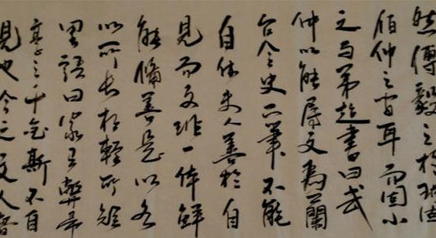 然傅毅之於班固
伯仲之間耳而固小
之与弟超書曰武
仲以能属文為蘭
台令史下筆不能
自休夫人善於自
見而文非一体鮮
能備善是以各
以所長相輕所短
里語曰家有弊帚
享之千金斯不自
見也今之文人魯